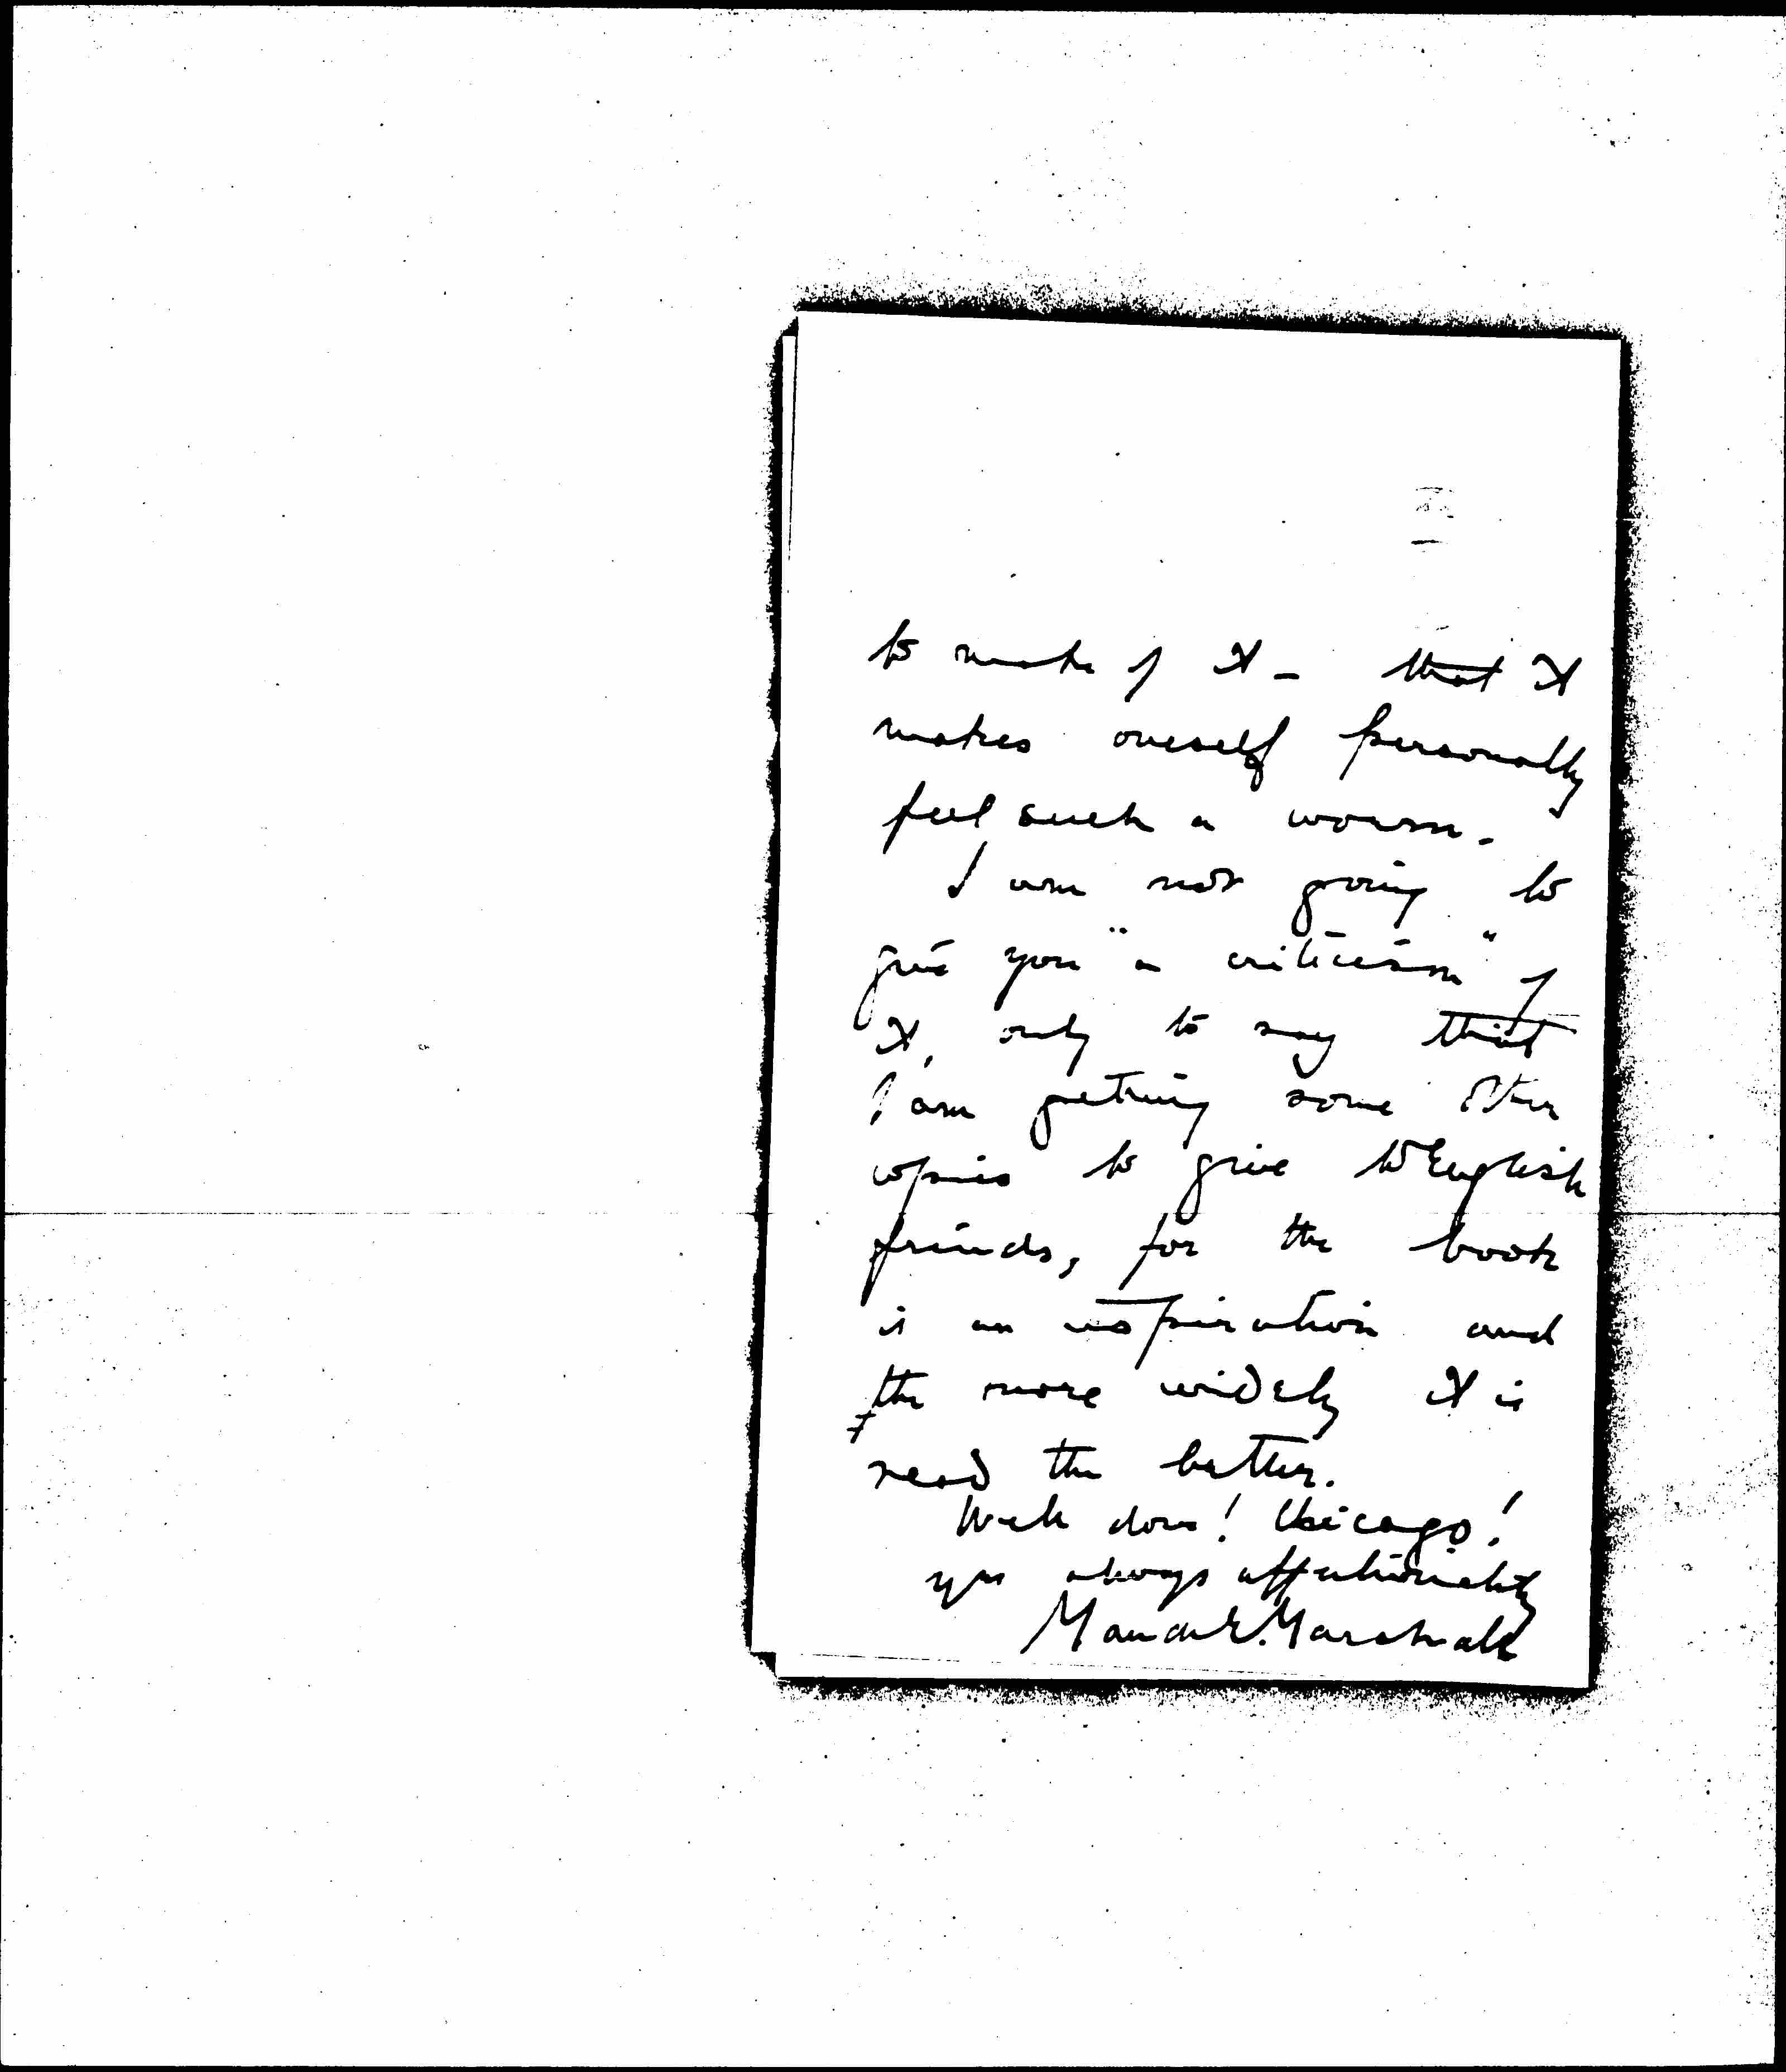 to make of it - that it
makes oneself personally
feel such a worm.
I am not going to
give you "a criticism" of
it, only to say that
I am getting some other
copies to give to English
friends, for the book
is an inspiration and
the more widely it is
read the better.
Well done! Chicago!
yrs always affectionately
Maude E. Marshall